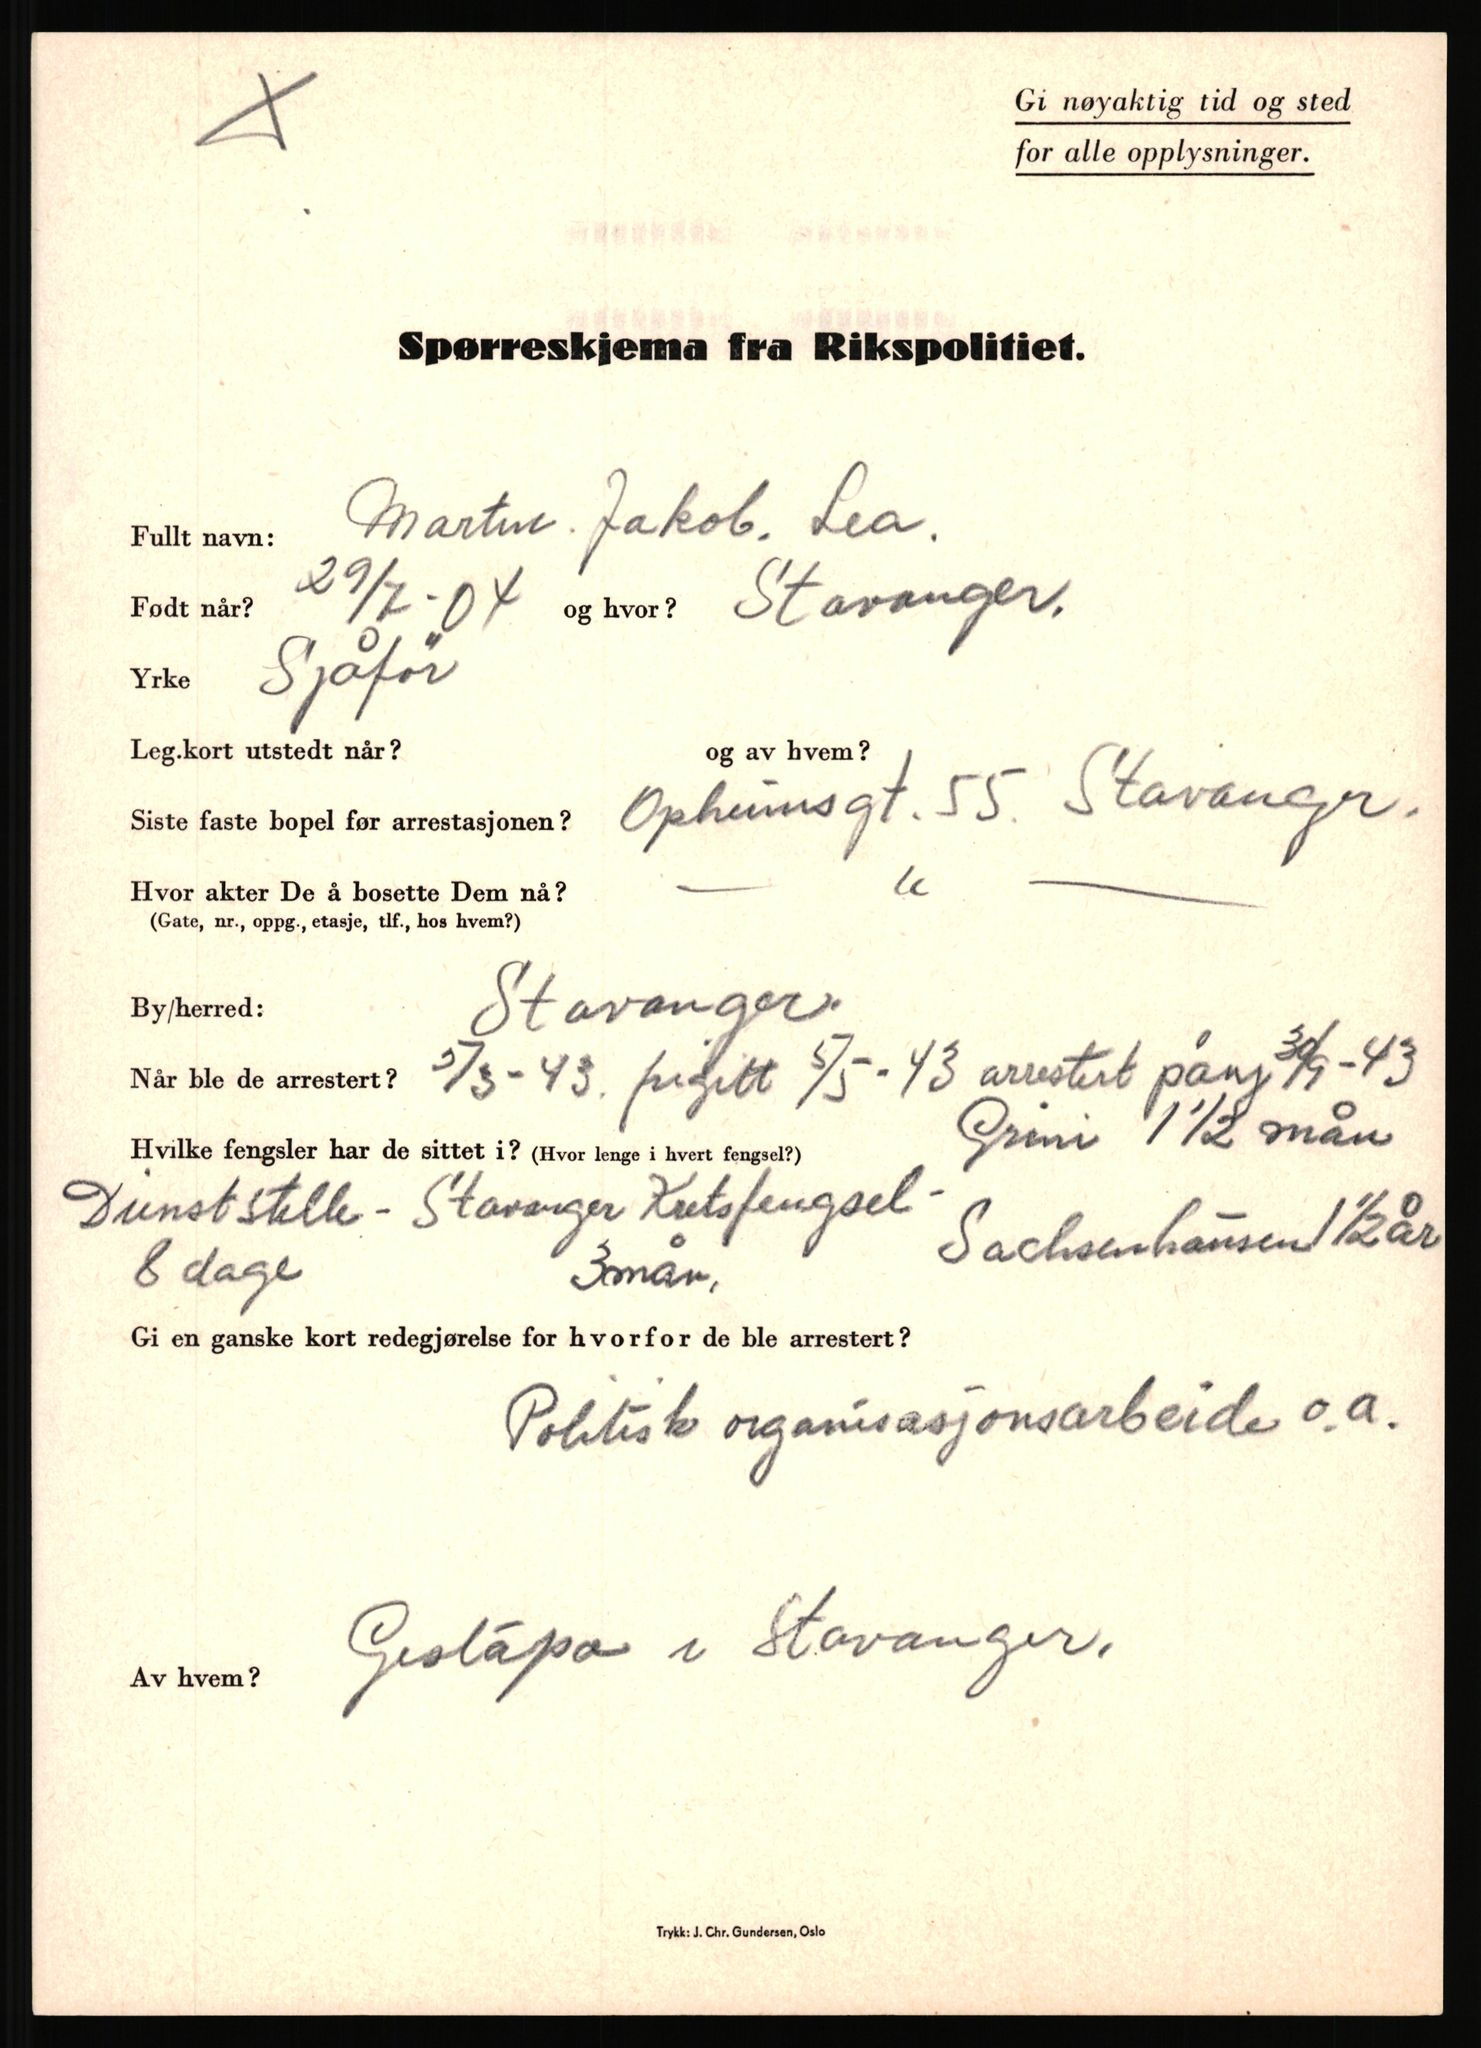 Gi nøyaktig tid og sted
for alle opplysninger.
Spørreskjema fra Rikspolitiet.
Fullt navn: Martin Jakob. Lea.
Født når? 29/7-04 og hvor? Stavanger.
Yrke Sjåför
Leg.kort utstedt når? og av hvem?
Siste faste bopel før arrestasjonen? Opheimsgt. 55. Stavanger.
Hvor akter De å bosette Dem nå? — " —
(Gate, nr., oppg., etasje, tlf., hos hvem?)
By/herred: Stavanger.
Når ble de arrestert? 5/3-43. frigitt 5/5-43 arrestert påny 30/9-43
Hvilke fengsler har de sittet i? (Hvor lenge i hvert fengsel?) Grini 1 1/2 mån
Dienststelle - Stavanger Kretsfengsel - Sachsenhausen 1 1/2 år
8 dage 3 mån.
Gi en ganske kort redegjørelse for hvorfor de ble arrestert?
Politisk organisasjonsarbeide o.a.
Av hvem? Gestapo i Stavanger.
Trykk: J. Chr. Gundersen, Oslo